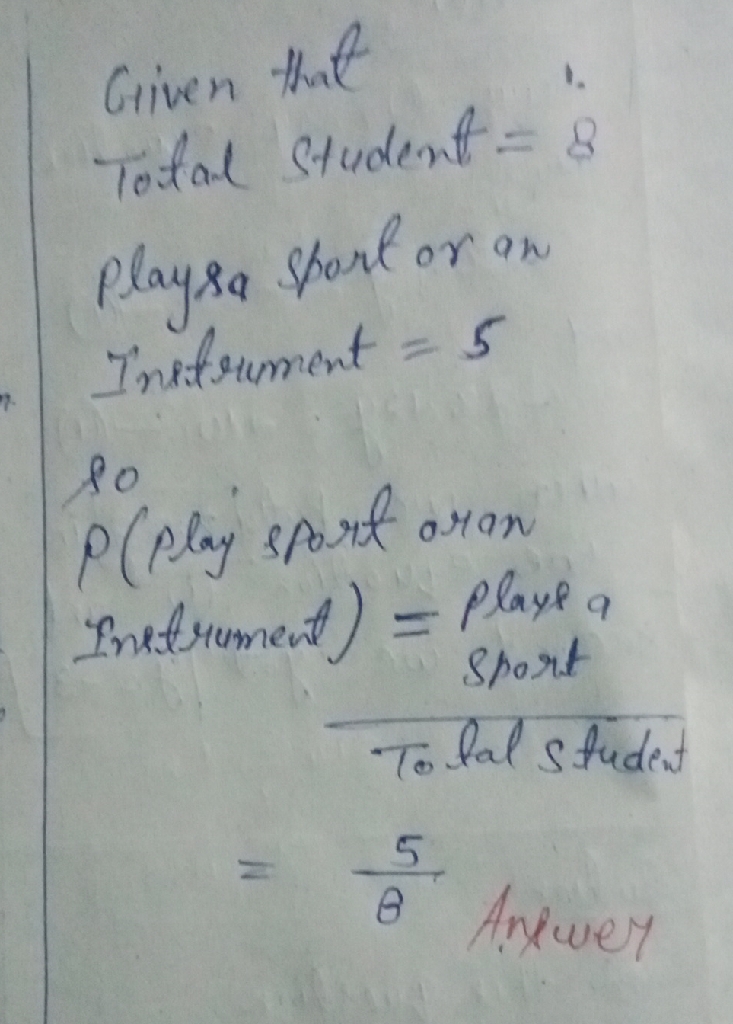 Given that
Total Student = 8
Plays a sport or an
Instrument = 5
so
P(Play sport or an
Instrument) = Plays a
sport
Total student
= 5
8
Answer